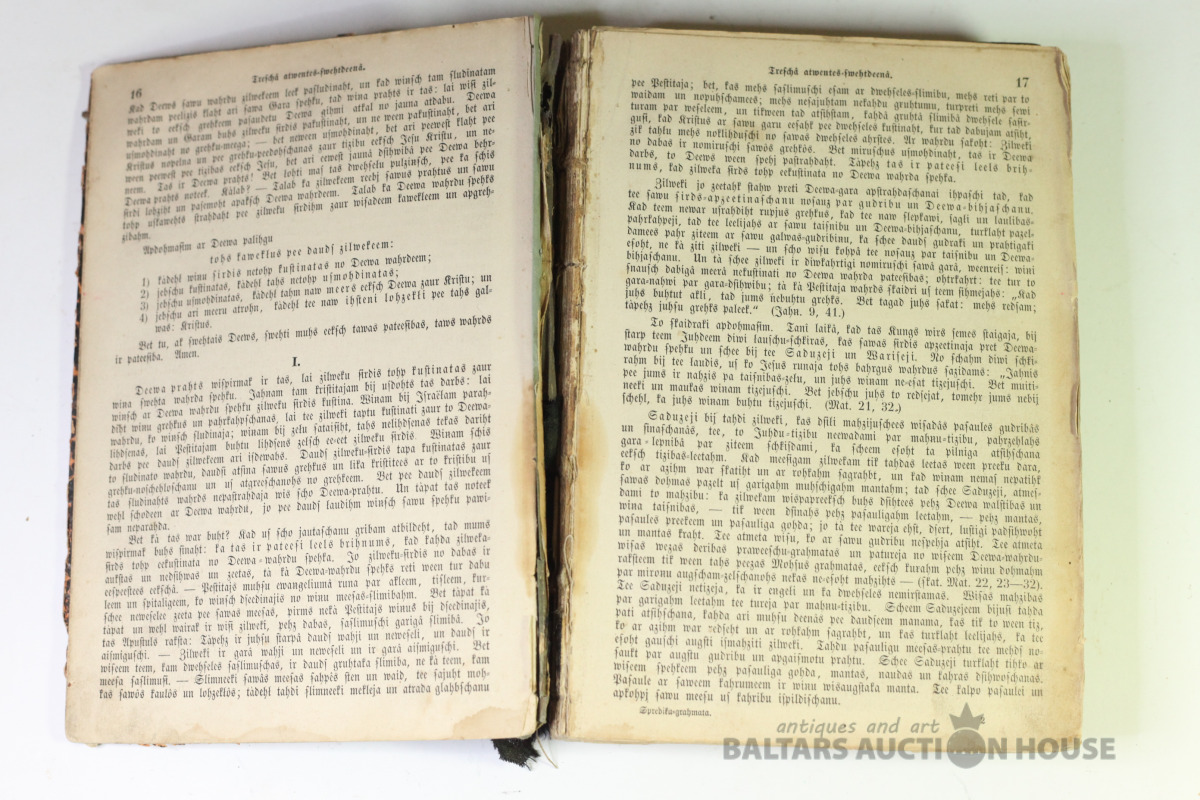 16
Treschâ atwentes-swehtdeenâ.
Kad Deews sawu wahrdu zilwekeem leek pasludinaht, un kad winsch tam sludinatam
wahrdam peelizis klaht ari sawa Gara spehku, tad wina prahts ir tas: lai wisi zil-
weki to eeksch grehkeem pasaudetu Deewa gihmi atkal no jauna atdabu. Deewa
wahrdam un Garam buhs zilweku sirdis pakustinaht, un ne ween pakustinaht, bet ari
usmohdinaht no grehku-meega; — bet neween usmohdinaht, bet ari peewest klaht pee
Kristus nopelna un pee grehku-peedohschanas zaur tizibu eeksch Jesu Kristu, un ne-
ween peewest pee tizibas eeksch Jesu, bet ari eewest jaunâ dsihwibâ pee Deewa behr-
neem. Tas ir Deewa prahts! Bet lohti mas tas dwehselu pulzinsch, pee ka schis
Deewa prahts noteek. Kâlab? — Talab ka zilwekeem reebj sawus prahtus un sawu
sirdi lohziht un pasemoht apaksch Deewa wahrdeem. Talab ka Deewa wahrdu spehks
tohp uskawehts strahdaht pee zilweku sirdihm zaur wisadeem kawekleem un apgreh-
zibahm.
Apdohmasim ar Deewa palihgu
tohs kaweklus pee daudf zilwekeem:
1) kâdehl winu sirdis netohp kustinatas no Deewa wahrdeem;
2) jebschu kustinatas, kâdehl tahs netohp usmohdinatas;
3) jebschu usmohdinatas, kâdehl tahm naw meers eeksch Deewa zaur Kristu; un
4) jebschu ari meeru atrohn, kâdehl tee naw ihsteni lohzekli pee tahs gal-
was: Kristus.
Bet tu, ak swehtais Deews, swehti muhs eeksch tawas pateesibas, taws wahrds
ir pateesiba. Amen.
I.
Deewa prahts wispirmak ir tas, lai zilweku sirdis tohp kustinatas zaur
wina swehta wahrda spehku. Jahnam tam kristitajam bij usdohts tas darbs: lai
winsch ar Deewa wahrdu spehku zilweku sirdis kustina. Winam bij Israëlam parah-
diht winu grehkus un pahrkahpschanas, lai tee zilweki taptu kustinati zaur to Deewa-
wahrdu, ko winsch sludinaja; winam bij zelu sataisiht, tahs nelihdsenas tekas dariht
lihdsenas, lai Pestitajam buhtu lihdsens zelsch ee-eet zilweku sirdis. Winam schis
darbs pee daudf zilwekeem ari isdewahs. Daudf zilweku-sirdis tapa kustinatas zaur
to sludinato wahrdu, daudfi atsina sawus grehkus un lika kristitees ar to kristibu us
grehku-noschehloschanu un us atgreeschanohs no grehkeem. Bet pee daudf zilwekeem
tas sludinahts wahrds nepastrahdaja wis scho Deewa-prahtu. Un tàpat tas noteek
wehl schodeen ar Deewa wahrdu, jo pee daudf laudihm winsch sawu spehku pawi-
sam neparahda.
Bet kà tas war buht? Kad us scho jautaschanu gribam atbildeht, tad mums
wispirmak buhs sinaht: ka tas ir pateesi leels brihnums, kad kahda zilweka-
sirds tohp eekustinata no Deewa-wahrdu spehka. Jo zilweku-sirdis no dabas ir
aukstas un nedsihwas un zeetas, tà kà Deewa-wahrdu spehks reti ween tur dabu
eespeestees eekschâ. — Pestitajs muhsu ewangeliumâ runa par akleem, tisleem, kur-
leem un spitaligeem, ko winsch dseedinajis no winu meesas-slimibahm. Bet tàpat kà
schee neweselee zeeta pee sawas meesas, pirms nekà Pestitajs winus bij dseedinajis,
tàpat un wehl wairak ir wisi zilweki, pehz dabas, saslimuschi garigâ slimibâ. Jo
tas Apustuls raksta: Tàpehz ir juhsu starpâ daudf wahji un neweseli, un daudf ir
aismiguschi. — Zilweki ir garâ wahji un neweseli un ir garâ aismiguschi. Bet
wiseem teem, kam dwehseles saslimuschas, ir daudf gruhtaka slimiba, ne kà teem, kam
meesa saslimusi. — Slimneeki sawâs meesas sahpês sten un waid, tee sajuht moh-
kas sawôs kaulôs un lohzeklôs; tadehl tahdi slimneeki mekleja un atrada glahbschanu
Treschâ atwentes-swehtdeenâ.
17
pee Pestitaja; bet, kas mehs saslimuschi esam ar dwehseles-slimibu, mehs reti par to
waidam un nopuhschamees; mehs nesajuhtam nekahdu gruhtumu, turpreti mehs sewi
turam par weseleem, un tikween tad atsihstam, kahdâ gruhtâ slimibâ dwehsele safir-
gusi, kad Kristus ar sawu garu eesahk pee dwehseles kustinaht, kur tad dabujam atsiht,
zik tahlu mehs noklihduschi no sawas dwehseles ahrstes. Ar wahrdu sakoht: Zilweki
no dabas ir nomiruschi sawôs grehkôs. Bet miruschus usmohdinaht, tas ir Deewa
darbs, to Deews ween spehj pastrahdaht. Tàpehz tas ir pateesi leels brih-
nums, kad zilweka sirds tohp eekustinata no Deewa wahrda spehka.
Zilweki jo zeetahk stahw preti Deewa-gara apstrahdaschanai ihpaschi tad, kad
tee sawu sirds-apzeetinaschanu nosauz par gudribu un Deewa-bihjaschanu.
Kad teem newar usrahdiht rupjus grehkus, kad tee naw slepkawi, sagli un laulibas-
pahrkahpeji, tad tee leelijahs ar sawu taisnibu un Deewa-bihjaschanu, turklaht pazel-
damees pahr ziteem ar sawu galwas-gudribinu, ka schee daudf gudraki un prahtigaki
esoht, ne kà ziti zilweki — un scho wisu kohpâ tee nosauz par taisnibu un Deewa-
bihjaschanu. Un tà schee zilweki ir diwkahrtigi nomiruschi sawâ garâ, weenreis: wini
snausch dabigâ meerâ nekustinati no Deewa wahrda pateesibas; ohtrkahrt: tee tur to
gara-nahwi par gara-dsihwibu; tà kà Pestitaja wahrds skaidri us teem sihmejahs: „Kad
juhs buhtut akli, tad jums nebuhtu grehks. Bet tagad juhs sakat: mehs redsam;
tàpehz juhsu grehks paleek.“ (Jahn. 9, 41.)
To skaidraki apdohmasim. Tani laikâ, kad tas Kungs wirs semes staigaja, bij
starp teem Juhdeem diwi lauschu-schkiras, kas sawas sirdis apzeetinaja pret Deewa-
wahrdu spehku un schee bij tee Saduzeji un Wariseji. No schahm diwi schki-
rahm bij tee laudis, us ko Jesus runaja tohs bahrgus wahrdus sazidams: „Jahnis
pee jums ir nahzis pa taisnibas-zelu, un juhs winam ne-esat tizejuschi. Bet muiti-
neeki un maukas winam tizejuschi. Bet jebschu juhs to redsejat, tomehr jums nebij
schehl, ka juhs winam buhtu tizejuschi. (Mat. 21, 32.)
Saduzeji bij tahdi zilweki, kas dsili mahzijuschees wisadâs pasaules gudribâs
un sinaschanâs, tee, to Juhdu-tizibu neewadami par mahnu-tizibu, pahrzehlahs
gara-lepnibâ par ziteem schkisdami, ka scheem esoht ta pilniga atsihschana
eeksch tizibas-leetahm. Kad meesigam zilwekam tik tahdas leetas ween preeku dara,
ko ar azihm war skatiht un ar rohkahm sagrahbt, un kad winam nemas nepatihk
sawas dohmas pazelt us garigahm muhschigahm mantahm; tad schee Saduzeji, atmes-
dami to mahzibu: ka zilwekam wispapreeksch buhs dsihtees pehz Deewa walstibas un
wina taisnibas, — tik ween dsinahs pehz pasauligahm leetahm, — pehz mantas,
pasaules preekeem un pasauliga gohda; jo tà tee wareja ehst, dsert, lustigi padsihwoht
un mantas kraht. Tee atmeta wisu, ko ar sawu gudribu nespehja atsiht. Tee atmeta
wisas wezas deribas praweeschu-grahmatas un patureja no wiseem Deewa-wahrdu-
raksteem tik ween tahs peezas Mohsus grahmatas, eeksch kurahm pehz winu dohmahm
par mironu augscham-zelschanohs nekas ne-esoht mahzihts — (skat. Mat. 22, 23—32).
Tee Saduzeji netizeja, ka ir engeli un ka dwehseles nemirstamas. Wisas mahzibas
par garigahm leetahm tee tureja par mahnu-tizibu. Scheem Saduzejeem bijusi tahda
pati atsihschana, kahda ari muhsu deenâs pee daudseem manama, kas tik to ween tiz,
ko ar azihm war redseht un ar rohkahm sagrahbt, un kas turklaht leelijahs, ka tee
esoht gauschi augsti ismahziti zilweki. Tahdu pasauligu meesas-prahtu tee mehdf no-
saukt par augstu gudribu un apgaismotu prahtu. Schee Saduzeji turklaht tihko ar
wiseem spehkeem pehz pasauliga gohda, mantas, naudas un kahras dsihwoschanas.
Pasaule ar saweem kahrumeem ir winu wisaugstaka manta. Tee kalpo pasaulei un
apkohpj sawu meesu us kahribu ispildischanu.
Sprediku-grahmata.
antiques and art
BALTARS AUCTION HOUSE